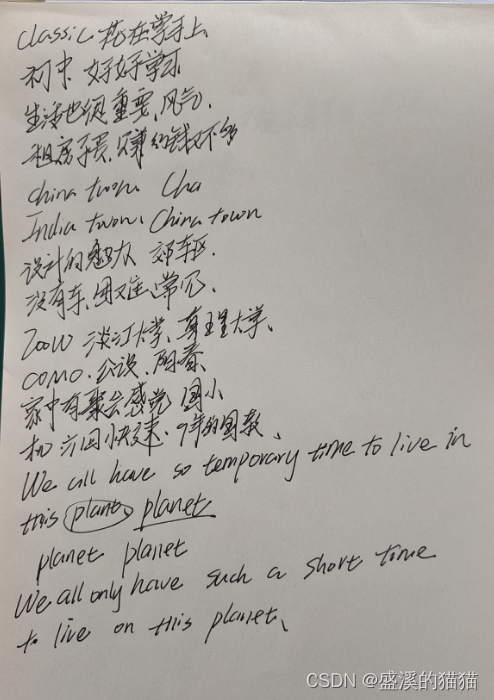 classic 花在学手上
初中 好好学习
生活也很重要、风气、
租房子费、只赚的钱又不够
china twon. Cha
India twon、China town
设计的魅力 郊车区.
没有车、困难、常见、
200W 淡江大学、真理大学、
como. 公设、阳春
家中有聚会感觉 国小
六 小 9年的国教、
We all have so temporary time to live in
this plant planet
planet planet
We all only have such a short time
to live on this planet、
CSDN @盛溪的猫猫